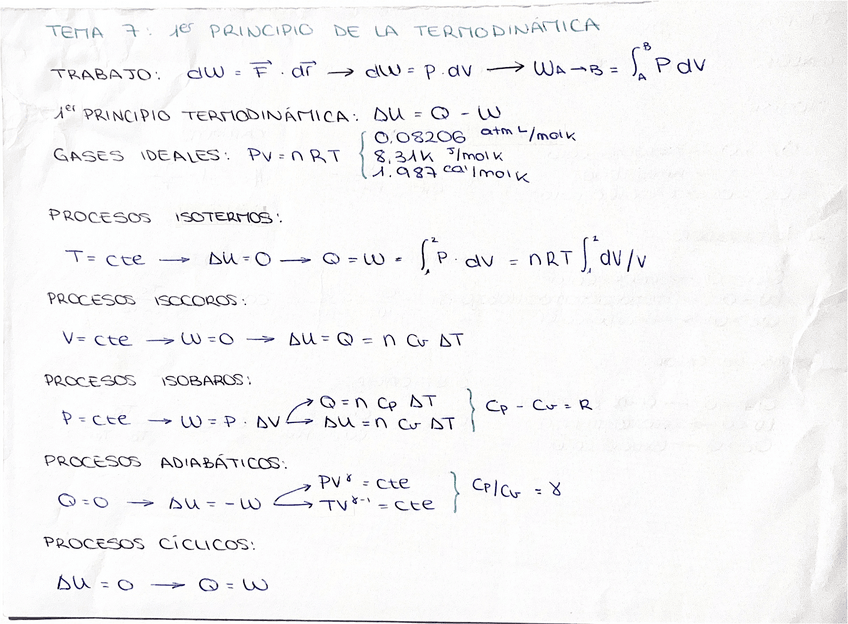 TEMA 7: 1er PRINCIPIO DE LA TERMODINÁMICA
TRABAJO: dW = F⃗ · dr⃗ → dW = P · dV → WA→B = ∫_A^B P dV
1er PRINCIPIO TERMODINÁMICA: ΔU = Q - W
GASES IDEALES: PV = nRT { 0.08206 atm L/mol K
8,31K J/mol K
1.987 cal/mol K
PROCESOS ISOTERMOS:
T = cte → ΔU = 0 → Q = W = ∫_1^2 P · dV = nRT ∫_1^2 dV/V
PROCESOS ISOCOROS:
V = cte → W = 0 → ΔU = Q = n Cv ΔT
PROCESOS ISOBAROS:
P = cte → W = P · ΔV → Q = n Cp ΔT } Cp - Cv = R
→ ΔU = n Cv ΔT
PROCESOS ADIABÁTICOS:
Q = 0 → ΔU = -W → PV^γ = cte } Cp/Cv = γ
→ TV^γ-1 = cte
PROCESOS CÍCLICOS:
ΔU = 0 → Q = W